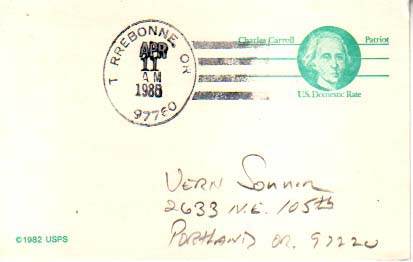 T RREBONNE OR
APR
11
AM
1986
97760
Charles Carroll Patriot
U.S. Domestic Rate
VERN
2633 N.E. 105th
PORTLAND OR. 97220
©1982 USPS